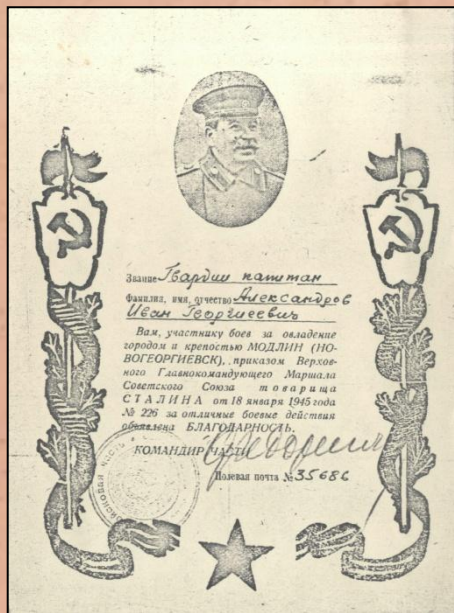 Звание Гвардии капитан
Фамилия, имя, отчество Александров
Иван Георгиевич
Вам, участнику боев за овладение
городом и крепостью МОДЛИН (НО-
ВОГЕОРГИЕВСК), приказом Верхов-
ного Главнокомандующего Маршала
Советского Союза товарища
СТАЛИНА от 18 января 1945 года
№ 226 за отличные боевые действия
объявлена БЛАГОДАРНОСТЬ.
КОМАНДИР ЧАСТИ
Полевая почта № 35686